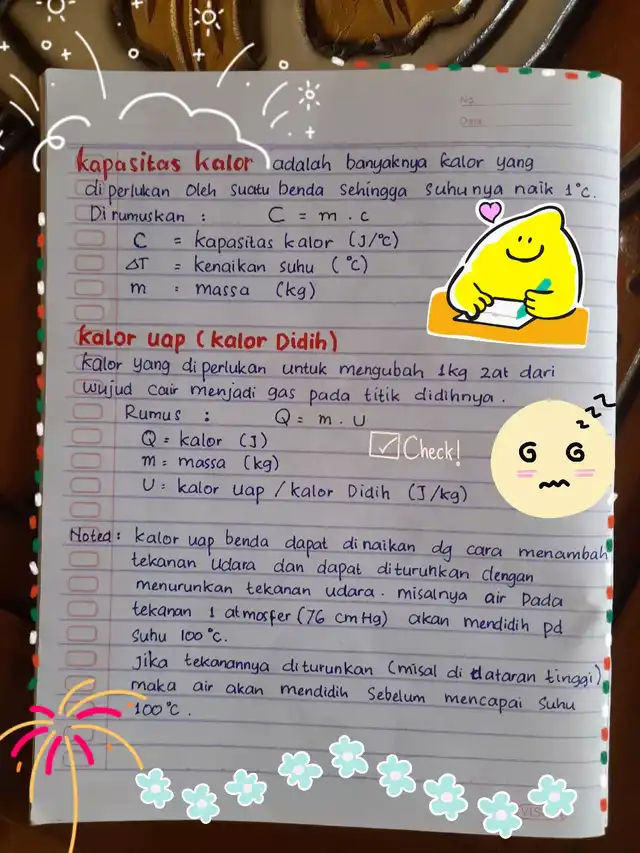 No
Date
kapasitas kalor adalah banyaknya kalor yang
diperlukan Oleh suatu benda sehingga suhunya naik 1°c.
Dirumuskan : C = m . c
C = kapasitas kalor (J/°c)
ΔT = kenaikan suhu (°c)
m = massa (kg)
kalor uap (kalor Didih)
kalor yang diperlukan untuk mengubah 1kg zat dari
wujud cair menjadi gas pada titik didihnya.
Rumus : Q = m . U
Q = kalor (J)
m = massa (kg)
Check!
U = kalor uap / kalor Didih (J/kg)
z z z
Noted : kalor uap benda dapat dinaikan dg cara menambah
tekanan udara dan dapat diturunkan dengan
menurunkan tekanan udara. misalnya air pada
tekanan 1 atmosfer (76 cmHg) akan mendidih pd
suhu 100°c.
Jika tekanannya diturunkan (misal di dataran tinggi)
maka air akan mendidih sebelum mencapai suhu
100°c.